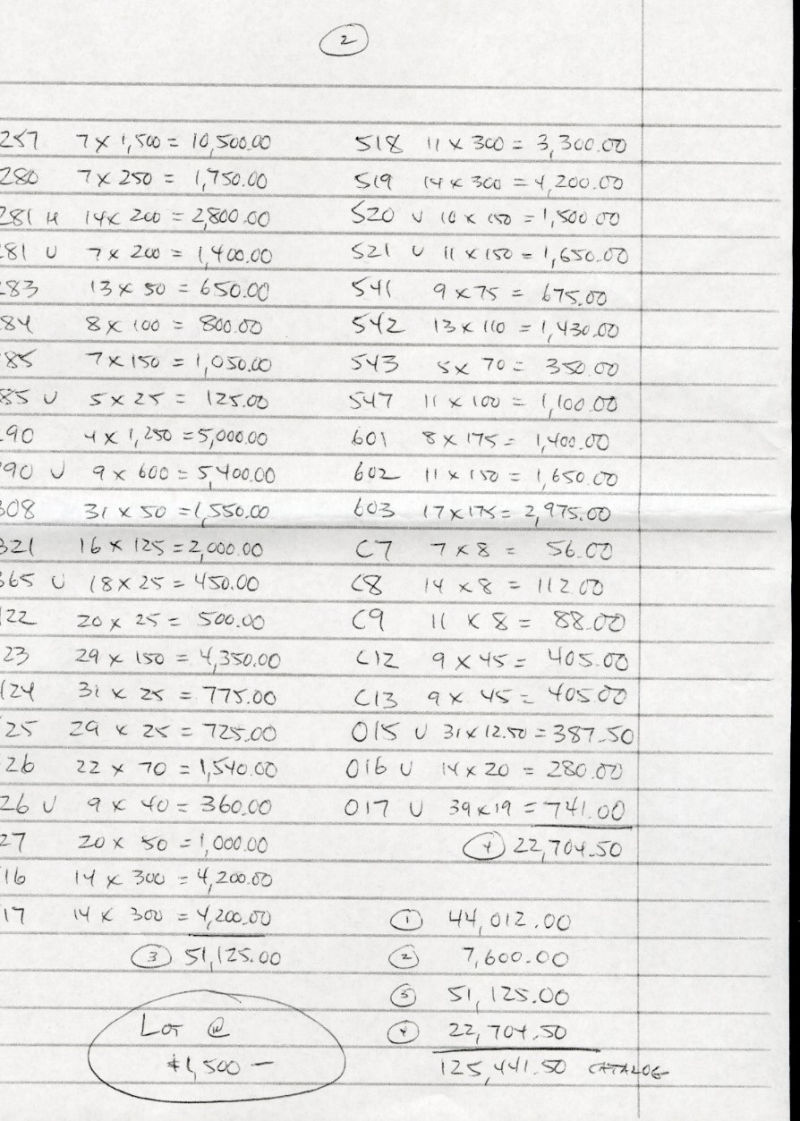 2
257 7 x 1,500 = 10,500.00
280 7 x 250 = 1,750.00
281 H 14 x 200 = 2,800.00
281 U 7 x 200 = 1,400.00
283 13 x 50 = 650.00
84 8 x 100 = 800.00
85 7 x 150 = 1,050.00
85 U 5 x 25 = 125.00
290 4 x 1,250 = 5,000.00
290 U 9 x 600 = 5,400.00
308 31 x 50 = 1,550.00
321 16 x 125 = 2,000.00
365 U 18 x 25 = 450.00
122 20 x 25 = 500.00
23 29 x 150 = 4,350.00
124 31 x 25 = 775.00
25 29 x 25 = 725.00
26 22 x 70 = 1,540.00
26 U 9 x 40 = 360.00
27 20 x 50 = 1,000.00
16 14 x 300 = 4,200.00
17 14 x 300 = 4,200.00
3 51,125.00
Lot @
$1,500 —
518 11 x 300 = 3,300.00
519 14 x 300 = 4,200.00
520 U 10 x 150 = 1,500.00
521 U 11 x 150 = 1,650.00
541 9 x 75 = 675.00
542 13 x 110 = 1,430.00
543 5 x 70 = 350.00
547 11 x 100 = 1,100.00
601 8 x 175 = 1,400.00
602 11 x 150 = 1,650.00
603 17 x 175 = 2,975.00
C7 7 x 8 = 56.00
C8 14 x 8 = 112.00
C9 11 x 8 = 88.00
C12 9 x 45 = 405.00
C13 9 x 45 = 405.00
O15 U 31 x 12.50 = 387.50
O16 U 14 x 20 = 280.00
O17 U 39 x 19 = 741.00
4 22,704.50
1 44,012.00
2 7,600.00
3 51,125.00
4 22,704.50
125,441.50 CATALOG